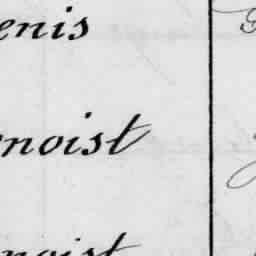 enis
noist
noist